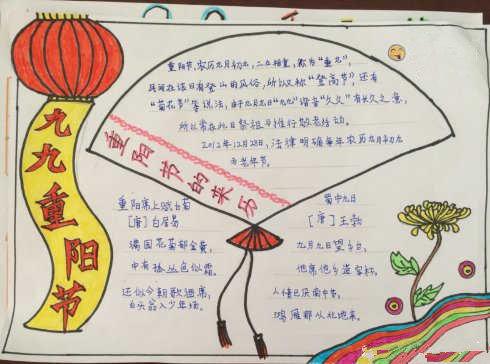 九九重阳节
重阳节的来历
重阳节,农历九月初九,二九相重,称为“重九”,
民间在该日有登高的风俗,所以又称“登高节”,还有
“菊花节”等说法,由于九月九日“九九”谐音“久久”有长久之意,
所以常在此日祭祖与推行敬老活动。
2012年12月28日,法律明确每年农历九月初九
为老年节。
重阳席上赋白菊
[唐]白居易
满园花菊郁金黄,
中有孤丛色似霜。
还似今朝歌酒席,
白头翁入少年场。
蜀中九日
[唐]王勃
九月九日望乡台,
他席他乡送客杯。
人情已厌南中苦,
鸿雁那从北地来。